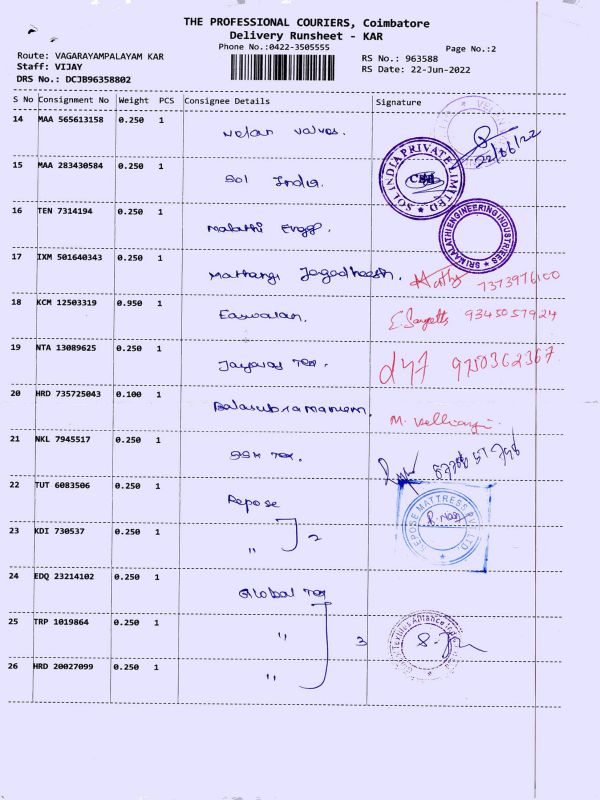 THE PROFESSIONAL COURIERS, Coimbatore
Delivery Runsheet - KAR
Phone No.:0422-3505555
Page No.:2
Route: VAGARAYAMPALAYAM KAR
RS No.: 963588
Staff: VIJAY
RS Date: 22-Jun-2022
DRS No.: DCJB96358802
S No Consignment No Weight PCS Consignee Details Signature
14 MAA 565613158 0.250 1
valves.
22/06/22
15 MAA 283430584 0.250 1
Sol India.
SOL INDIA PRIVATE LIMITED
16 TEN 7314194 0.250 1
Malathi Engg.
SRI MALATHI ENGINEERING INDUSTRIES
17 IXM 501640343 0.250 1
Mathangi Jagadheesh.
7373976100
18 KCM 12503319 0.950 1
Easwaran.
9345057924
19 NTA 13089625 0.250 1
Tex.
9750362367
20 HRD 735725043 0.100 1
Balasubramaniam.
M.
21 NKL 7945517 0.250 1
SSM Tex.
22 TUT 6083506 0.250 1
Repose
REPOSE MATTRESS PVT. LTD.
23 KDI 730537 0.250 1
" 2
24 EDQ 23214102 0.250 1
Global Tex
25 TRP 1019864 0.250 1
" 3
26 HRD 20027099 0.250 1
"